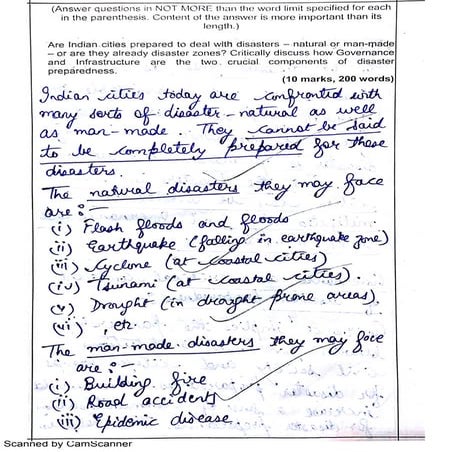 (Answer questions in NOT MORE than the word limit specified for each
in the parenthesis. Content of the answer is more important than its
length.)
Are Indian cities prepared to deal with disasters – natural or man-made
– or are they already disaster zones? Critically discuss how Governance
and Infrastructure are the two crucial components of disaster
preparedness.
(10 marks, 200 words)
Indian cities today are confronted with
many sorts of disaster - natural as well
as man-made. They cannot be said
to be completely prepared for these
disasters.
The natural disasters they may face
are :-
(i) Flash floods and floods
(ii) Earthquake (falling in earthquake zone)
(iii) Cyclone (at coastal cities)
(iv) Tsunami (at coastal cities).
(v) Drought (in draught prone areas).
(vi) , etc.
The man-made disasters they may face
are :-
(i) Building fire
(ii) Road accidents
(iii) Epidemic disease.
Scanned by CamScanner